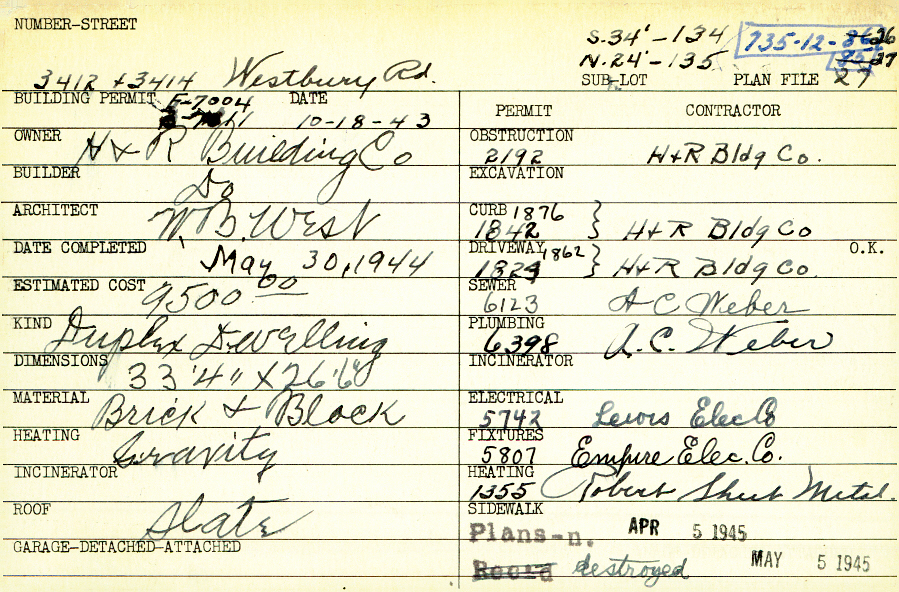 NUMBER-STREET
S.34' - 134
N.24' - 135
735-12-
27
3412 + 3414 Westbury Rd.
SUB-LOT PLAN FILE 27
BUILDING PERMIT F-7004 DATE
10-18-43
OWNER H & R Building Co
BUILDER Do
ARCHITECT W.B. West
DATE COMPLETED May 30, 1944
ESTIMATED COST 9500 00
KIND Duplex Dwelling
DIMENSIONS 33'4" X 26'6"
MATERIAL Brick & Block
HEATING Gravity
INCINERATOR
ROOF Slate
GARAGE-DETACHED-ATTACHED
PERMIT CONTRACTOR
OBSTRUCTION
2192 H+R Bldg Co.
EXCAVATION
CURB 1876
1842 } H+R Bldg Co
DRIVEWAY 1862 O.K.
1824 } H+R Bldg Co.
SEWER
6123 A C Weber
PLUMBING
6398 A.C. Weber
INCINERATOR
ELECTRICAL
5742 Lewis Elec Co
FIXTURES
5807 Empire Elec. Co.
HEATING
1355 Robert Sheet Metal.
SIDEWALK
Plans-n. APR 5 1945
Record destroyed MAY 5 1945